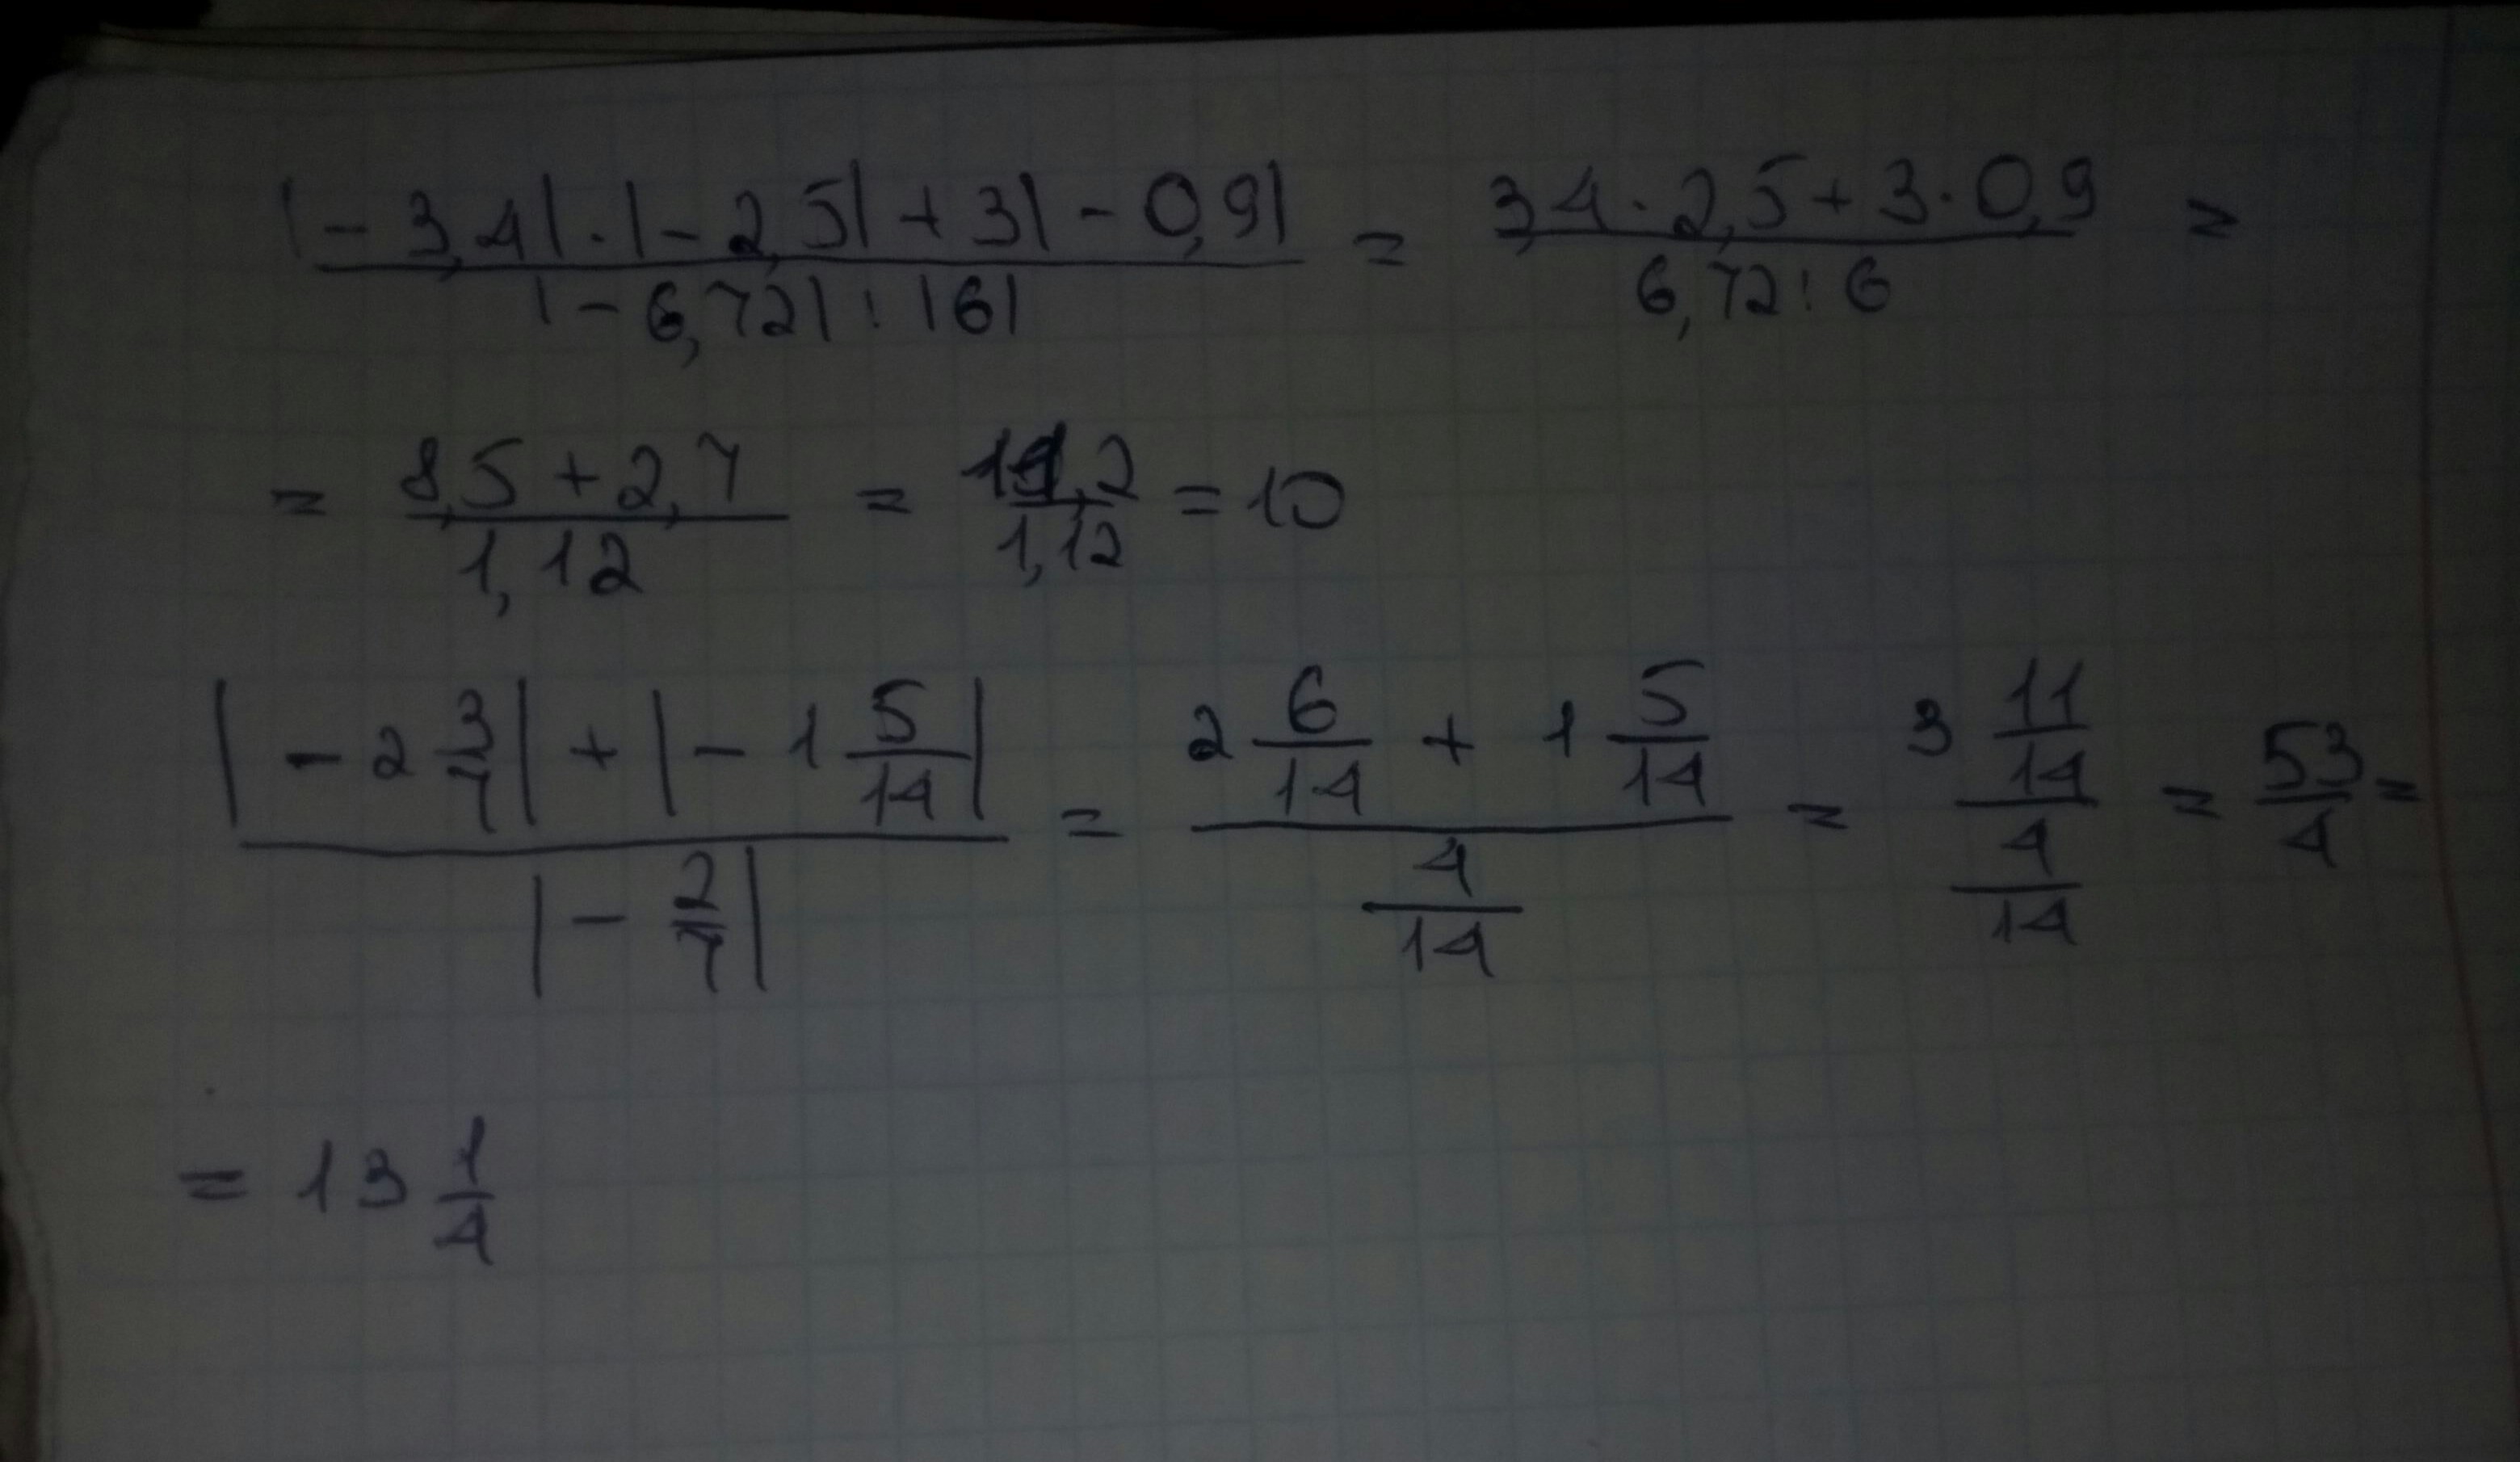 |-3,4|·|-2,5|+3|-0,9| / |-6,72|:|6| = 3,4·2,5+3·0,9 / 6,72:6 =
= 8,5+2,7 / 1,12 = 11,2 / 1,12 = 10
|-2 3/7| + |-1 5/14| / |-2/7| = 2 6/14 + 1 5/14 / 4/14 = 3 11/14 / 4/14 = 53/4 =
= 13 1/4